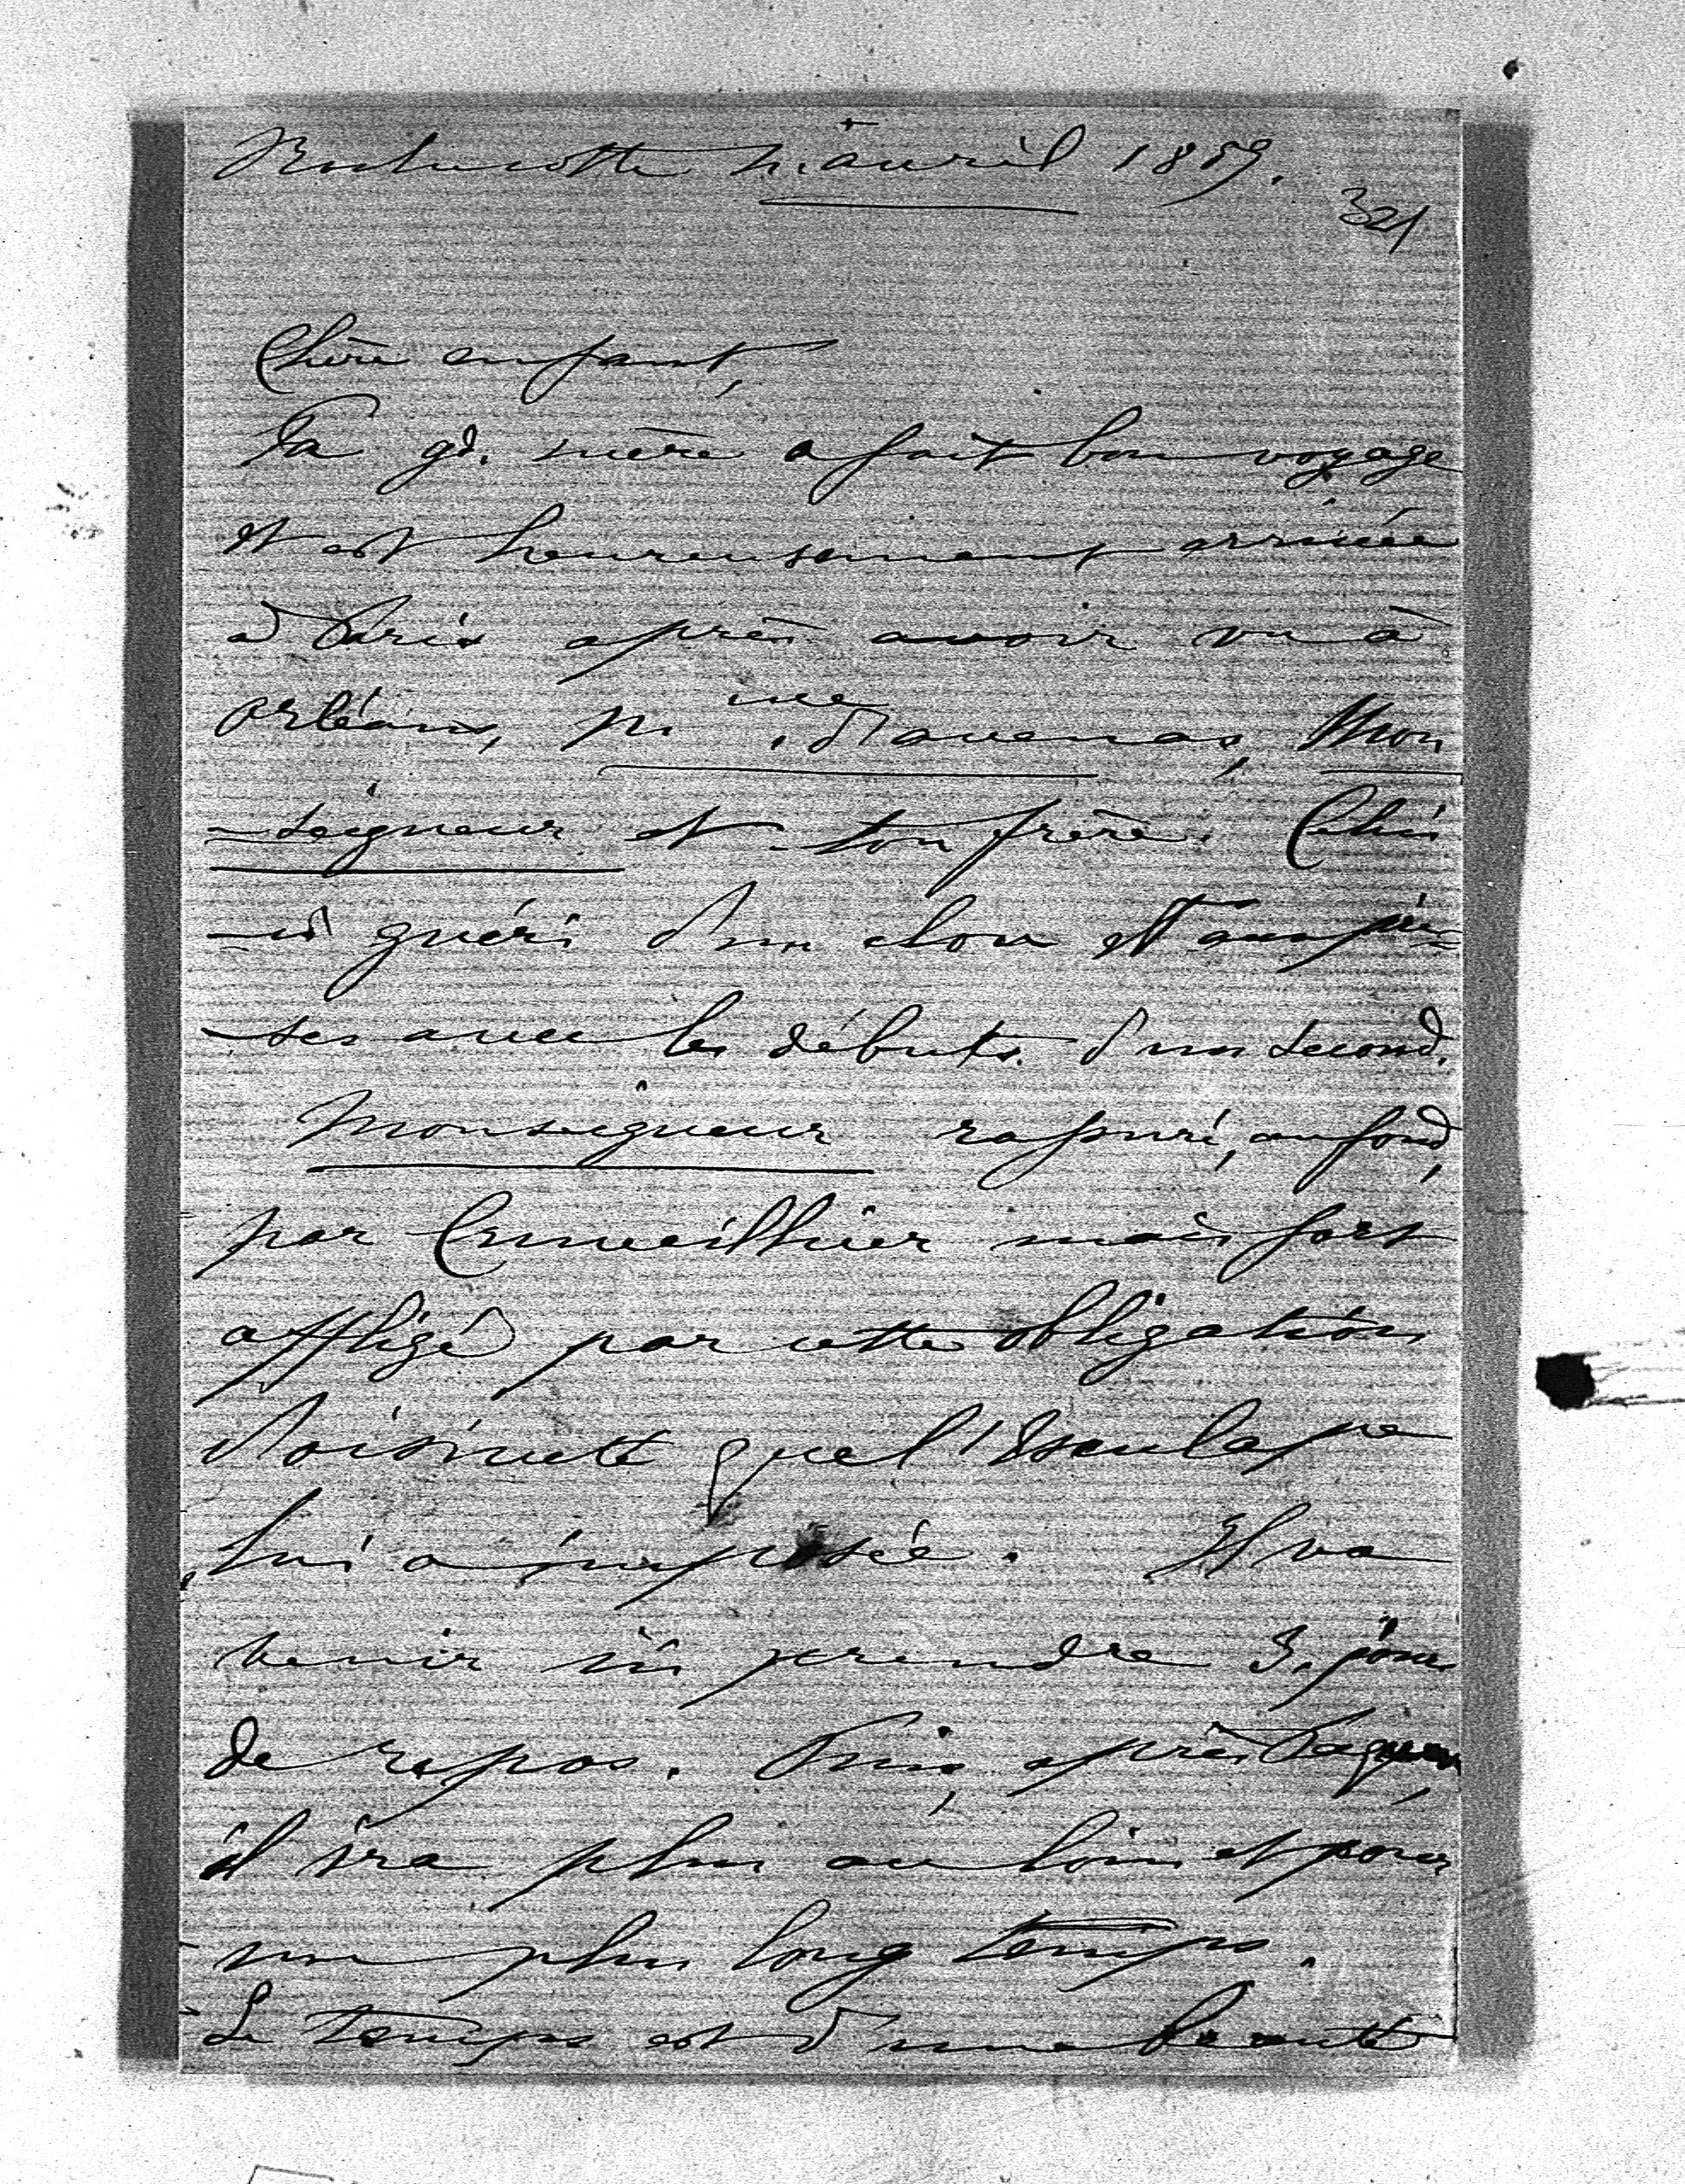 Rochecotte avril 1859.
321
Chère enfant,
Ta gd. mère a fait bon voyage
et est heureusement arrivée
à Paris après avoir vu à
Orléans, Mme. d'avenas, Mon
-seigneur et ton frère. Celui
-ci guéri d'un clou et aux pri-
-ses avec les débuts d'un second.
Monseigneur rassuré, au fond,
par Cruveilhier mais fort
affligé par cette obligation
d'oisiveté que l'Esculape
lui a imposée. Il va
venir ici prendre 3. jours
de repos. Puis, après Pâques,
il ira plus au loin et pour
un plus long temps.
Le temps est d'une beauté